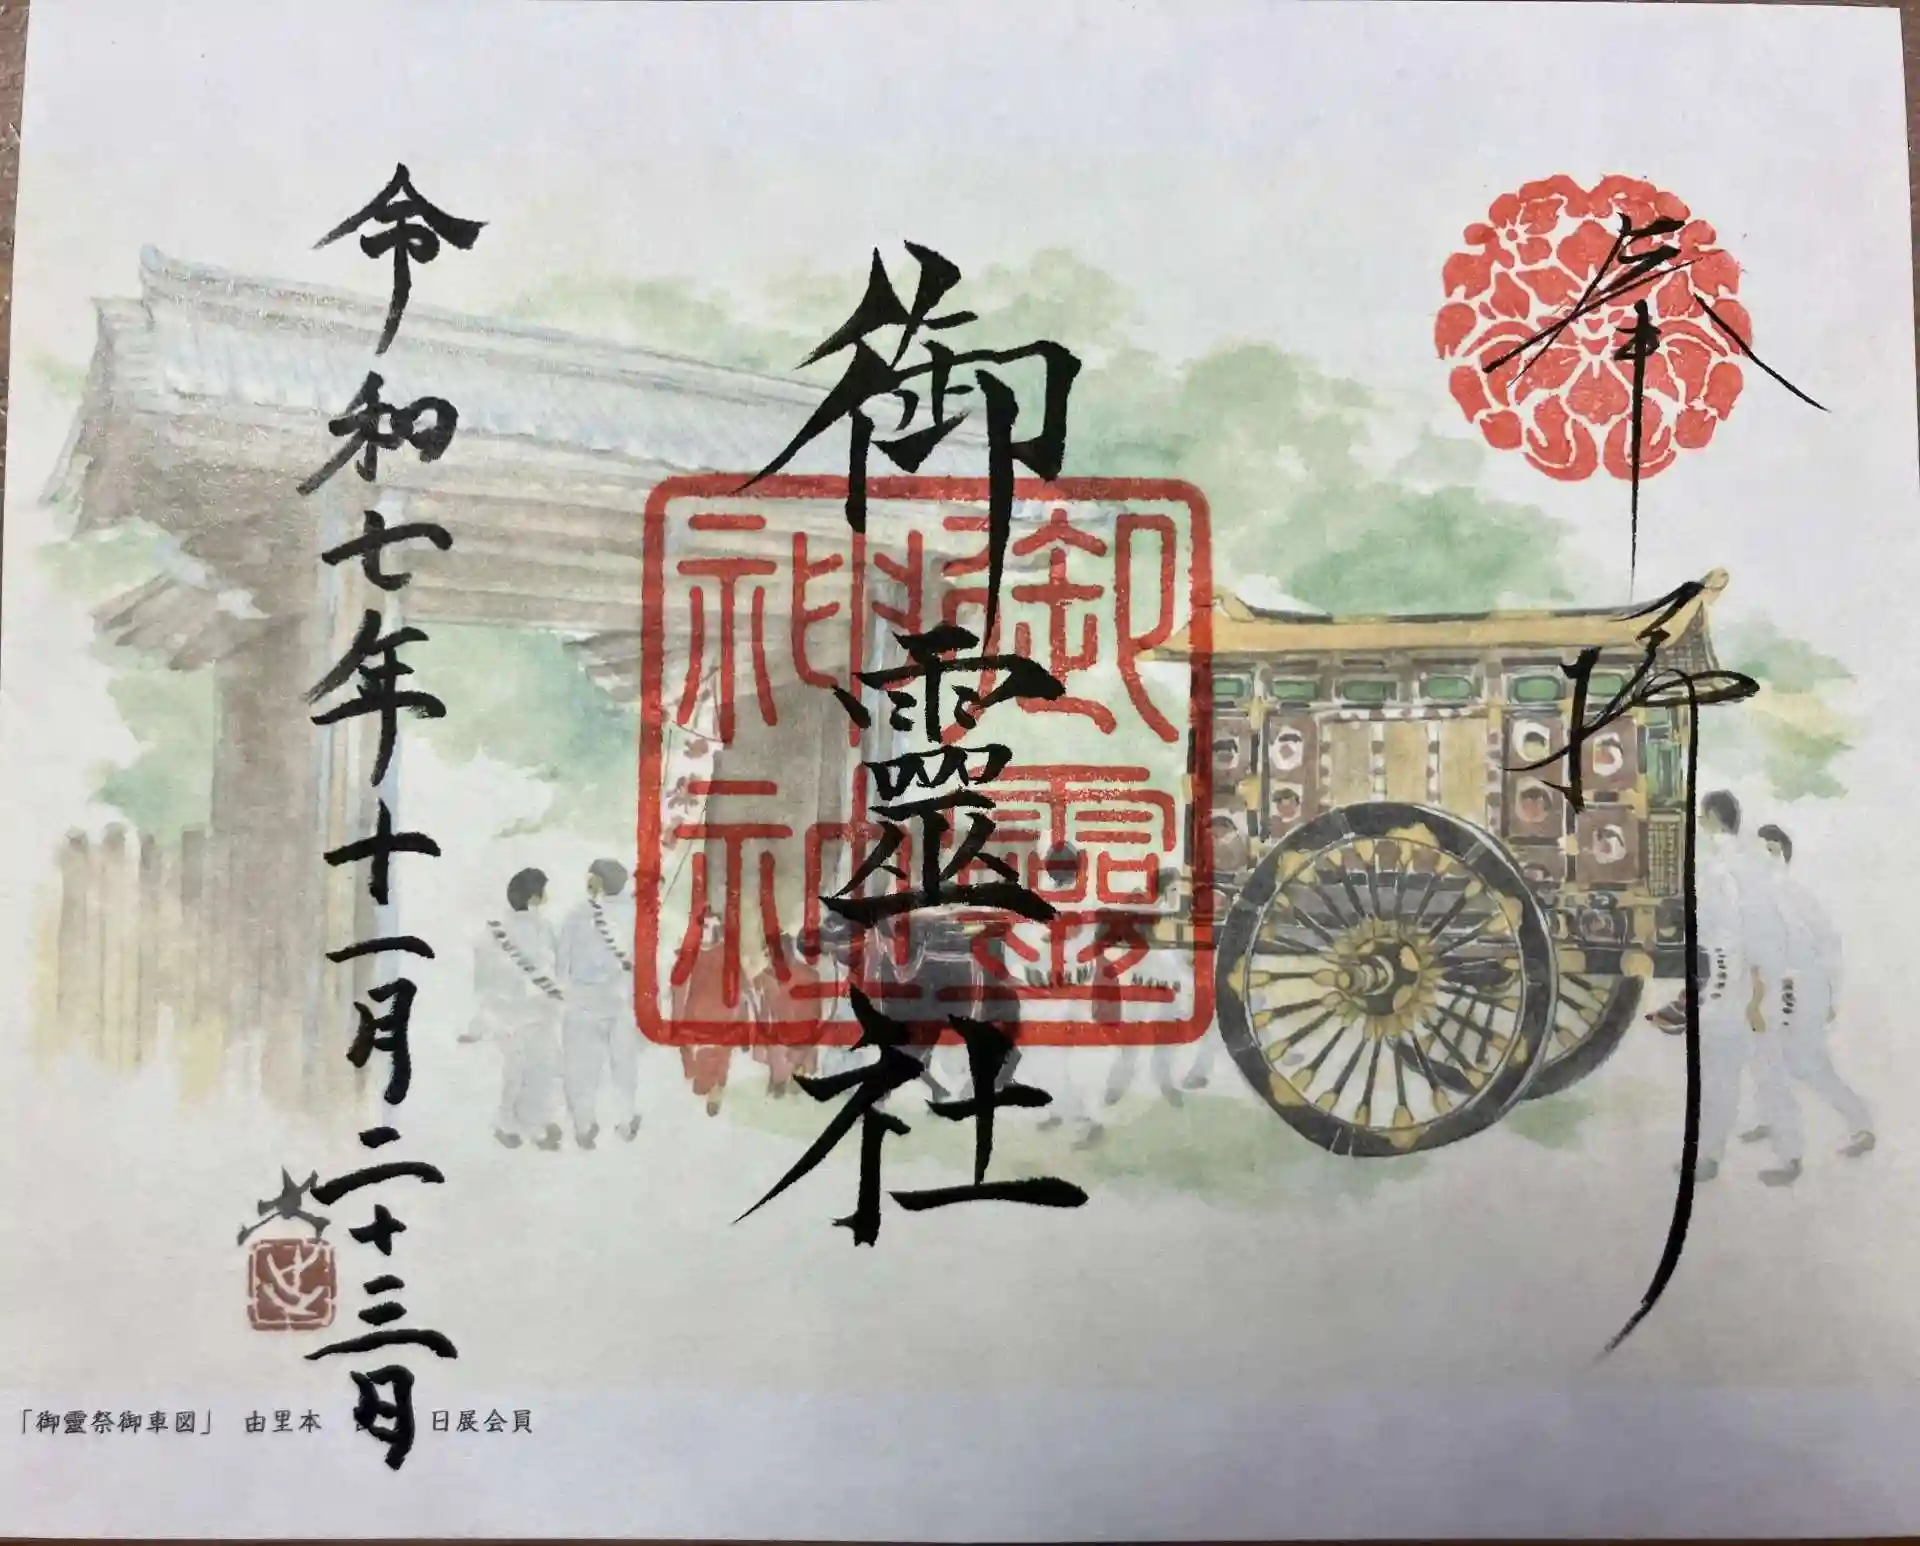 奉拝
御靈社
御靈神社
令和七年十一月二十三日
「御靈祭御車図」 由里本 日展会員